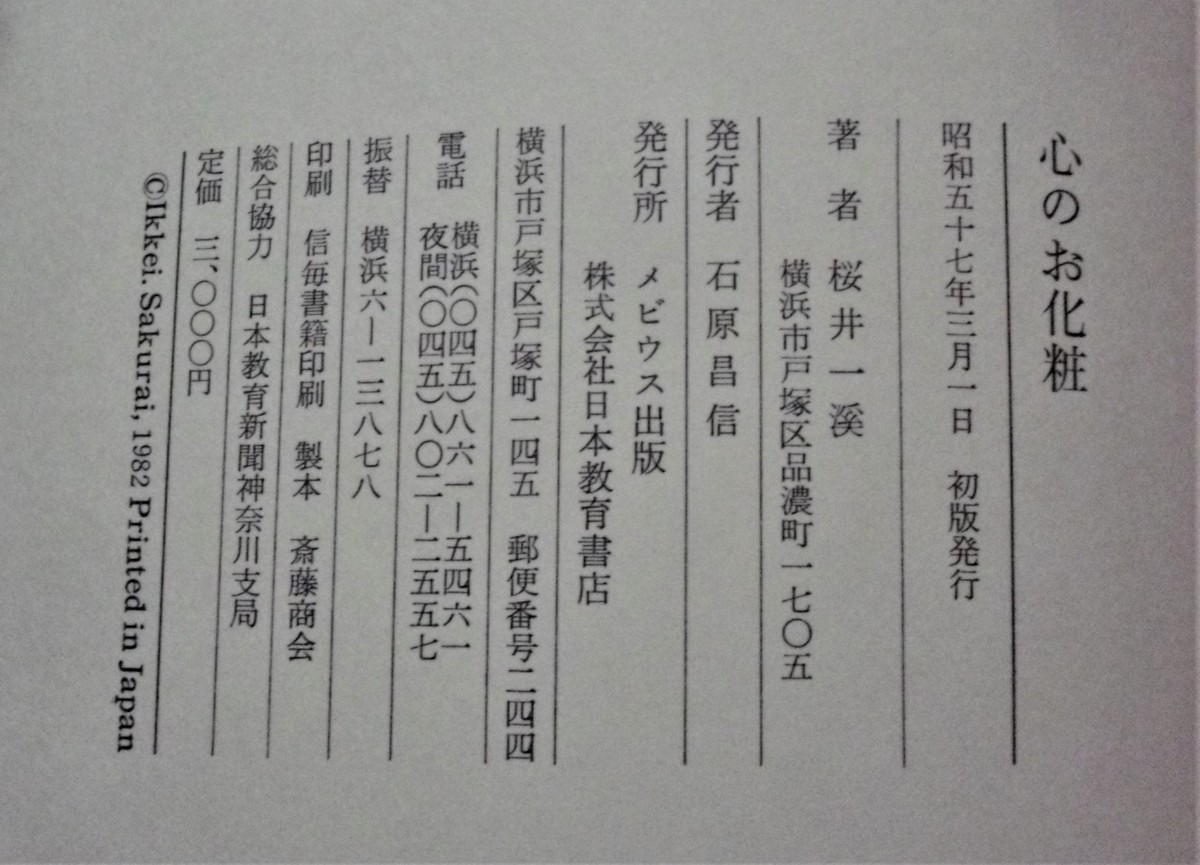 心のお化粧
昭和五十七年三月一日　初版発行
著　者　桜井一溪
横浜市戸塚区品濃町一七〇五
発行者　石原昌信
発行所　メビウス出版
株式会社日本教育書店
横浜市戸塚区戸塚町一四五　郵便番号二四四
電話　横浜(〇四五)八六一―五四六一
夜間(〇四五)八〇二―二五五七
振替　横浜六―一三八七八
印刷　信毎書籍印刷　製本　斎藤商会
総合協力　日本教育新聞神奈川支局
定価　三、〇〇〇円
©Ikkei. Sakurai, 1982 Printed in Japan